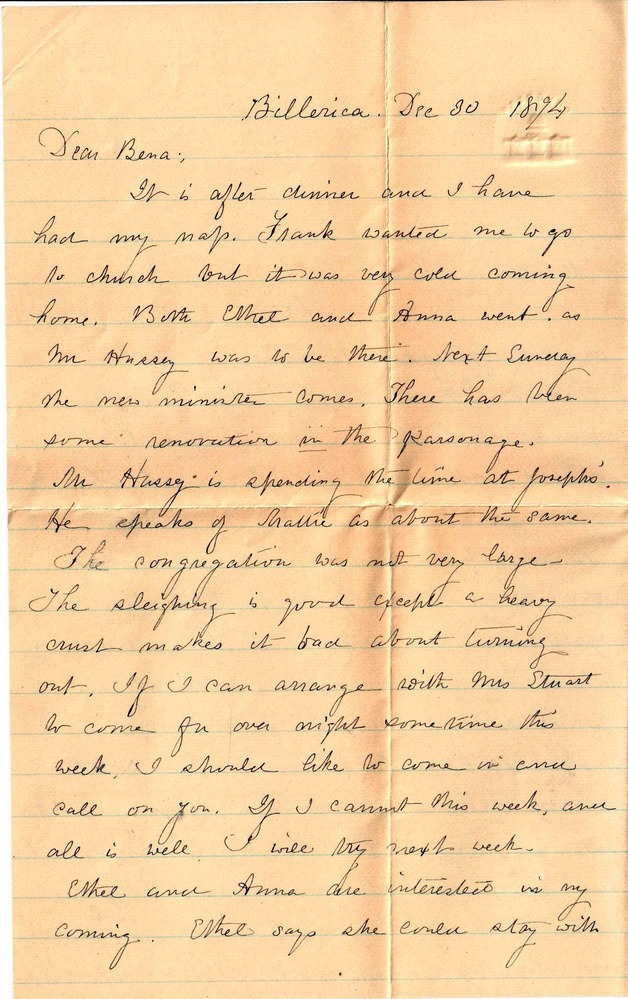 Billerica. Dec 30 1894
Dear Bena:,
It is after dinner and I have
had my nap. Frank wanted me to go
to church but it was very cold coming
home. Both Ethel and Anna went. as
Mr Hussey was to be there. Next Sunday
the new minister comes. There has been
some renovation in the parsonage.
Mr Hussey is spending the time at Josephs'.
He speaks of Mattie as about the same.
The congregation was not very large-
The sleighing is good except a heavy
crust makes it bad about turning
out. If I can arrange with Mrs Stuart
to come for over night sometime this
week, I should like to come in and
call on you. If I cannot this week, and
all is well I will try next week.
Ethel and Anna are interested in my
coming. Ethel says she could stay with